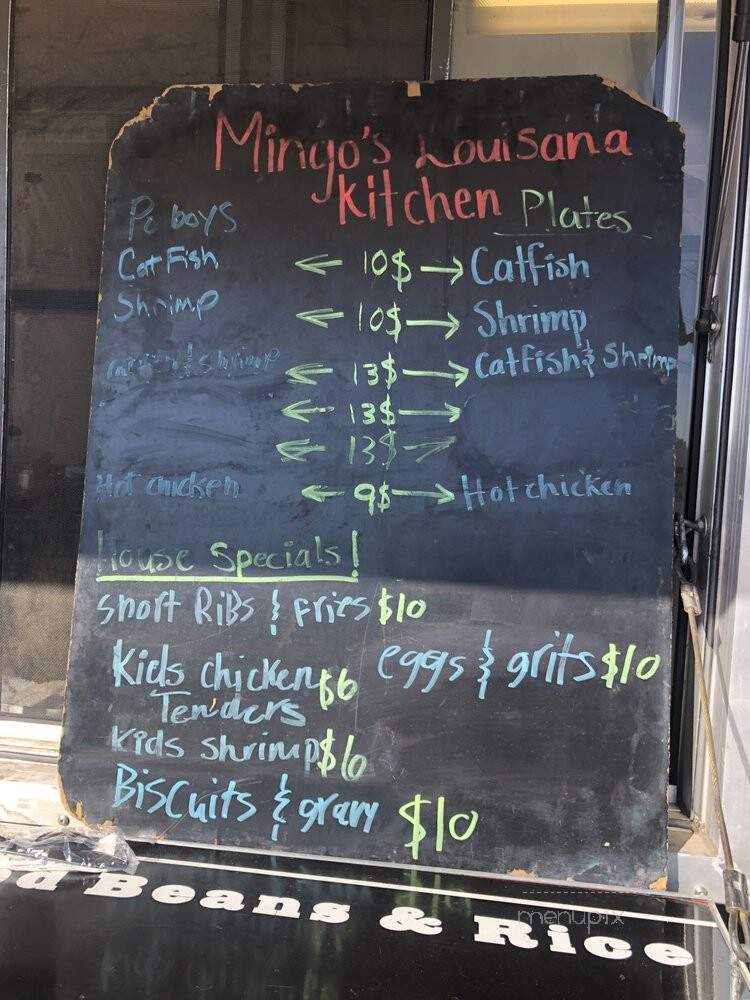 Mingo's Louisana
Kitchen
Po boys Plates
Catfish ← 10$ → Catfish
Shrimp ← 10$ → Shrimp
Catfish & shrimp ← 13$ → Catfish & Shrimp
← 13$ →
← 13$ →
Hot chicken ← 9$ → Hot chicken
House Specials!
Short Ribs & fries $10
Kids chicken $6 eggs & grits $10
Tenders
Kids shrimp $6
Biscuits & gravy $10
ed Beans & Rice
menupix